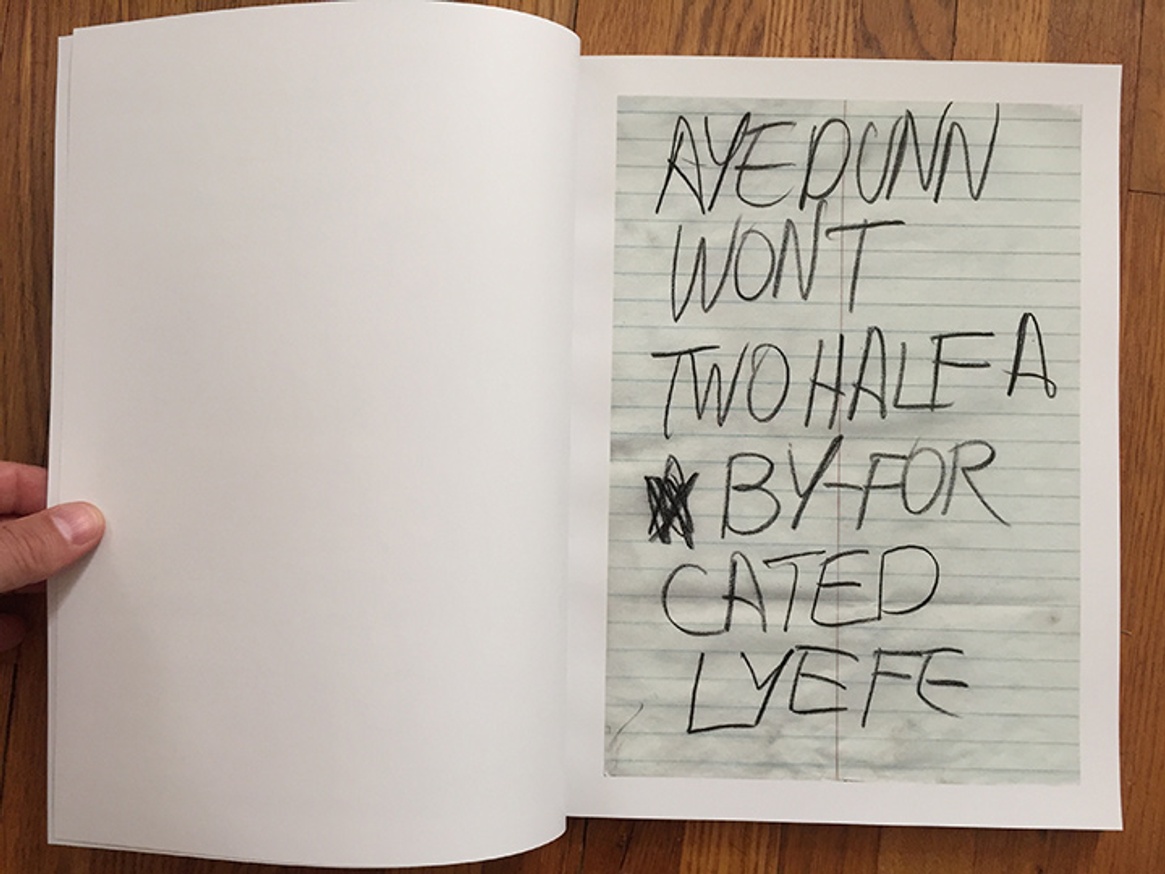 AYE DUNN
WON'T
TWO HALF A
BY-FOR
CATED
LYEFE